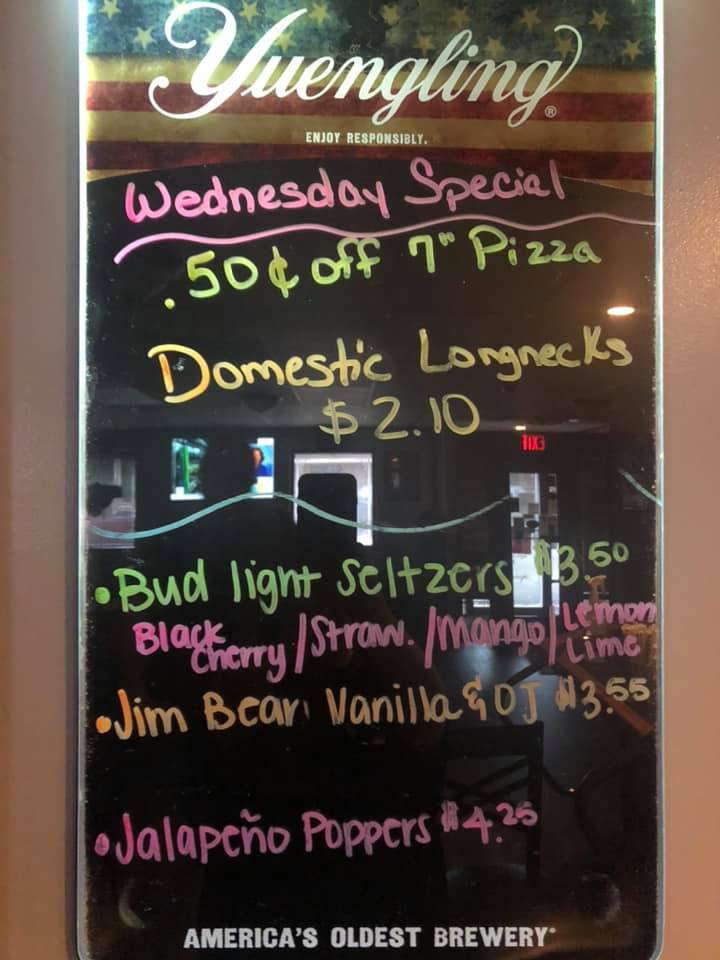 Yuengling®
ENJOY RESPONSIBLY.
Wednesday Special
.50¢ off 7" Pizza
Domestic Longnecks
$2.10
EXIT
•Bud light Seltzers $3.50
Black Cherry/Straw./Mango/Lemon Lime
•Jim Bean Vanilla & OJ $3.55
•Jalapeño Poppers $4.25
AMERICA'S OLDEST BREWERY®